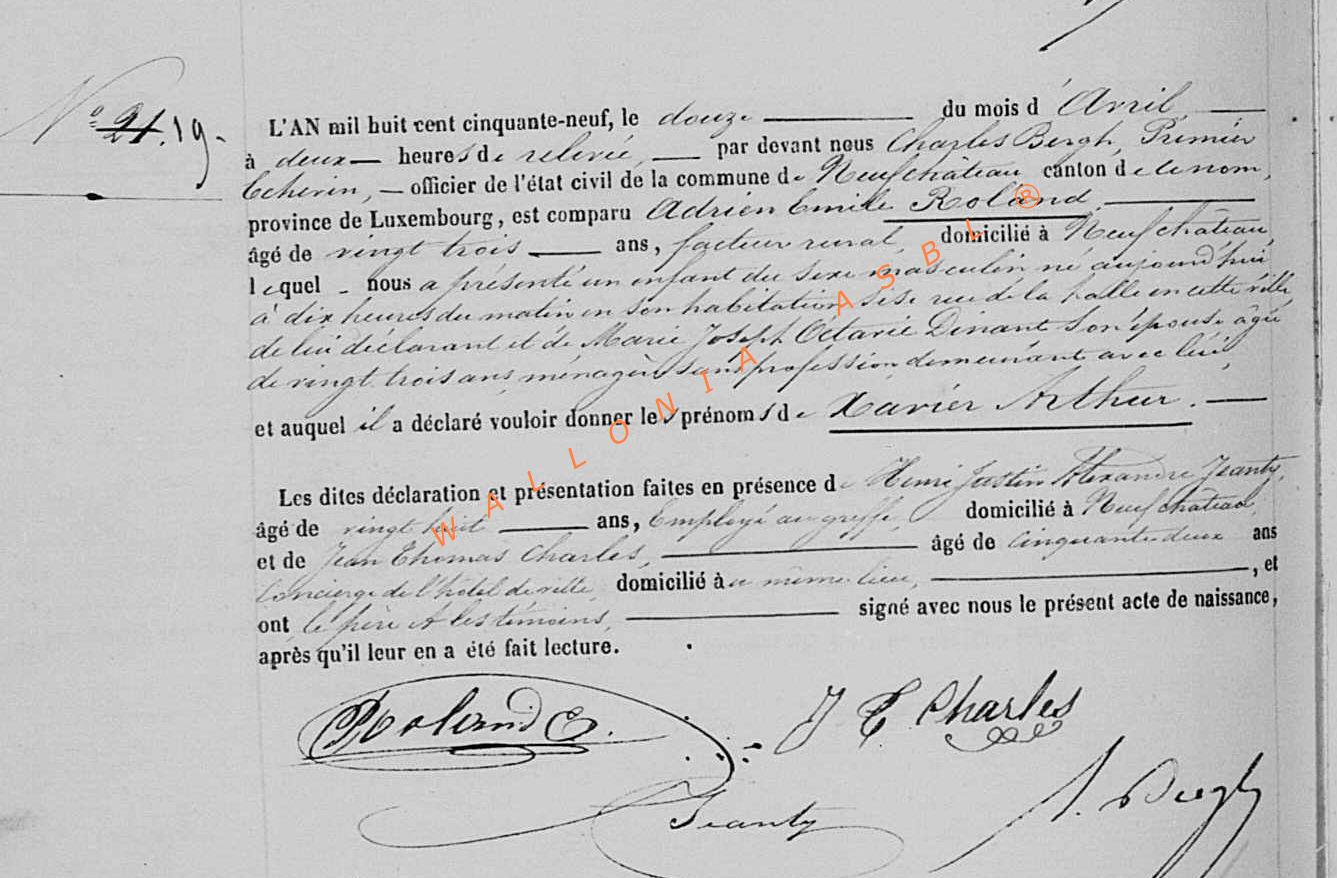 N° 21. 19.
L'AN mil huit cent cinquante-neuf, le douze du mois d'Avril
à deux heures de relevée, par devant nous Charles Bergh, Premier
Echevin, officier de l'état civil de la commune de Neufchâteau canton de ce nom,
province de Luxembourg, est comparu Adrien Emile Roland,
âgé de vingt trois ans, facteur rural, domicilié à Neufchâteau,
lequel nous a présenté un enfant du sexe masculin né aujourd'hui
à dix heures du matin en son habitation, sise rue de la halle en cette ville,
de lui déclarant et de Marie Joseph Octavie Dinant son épouse âgée
de vingt trois ans, ménagère sans profession demeurant avec lui,
et auquel il a déclaré vouloir donner les prénoms de Xavier Arthur.
Les dites déclaration et présentation faites en présence de Henri Justin Alexandre Jeanty,
âgé de vingt huit ans, Employé au greffe domicilié à Neufchâteau,
et de Jean Thomas Charles, âgé de cinquante-deux ans
Concierge de l'hôtel de ville, domicilié au même lieu, , et
ont le père et les témoins, signé avec nous le présent acte de naissance,
après qu'il leur en a été fait lecture.
Roland E.
J T Charles
Jeanty
Bergh
WALLONIA ASBL ®